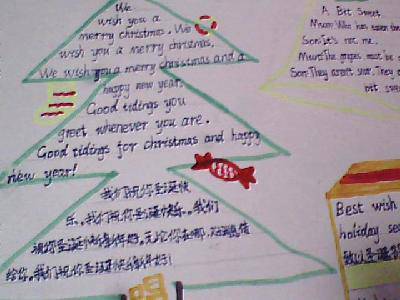 We
wish you a
merry christmas. We
wish you a merry christmas,
We wish you a merry christmas and a
happy new year.
Good tidings you
greet whenever you are.
Good tidings for christmas and happy
new year!
我们祝你圣诞快
乐.我们祝你圣诞快乐.我们
祝你圣诞快乐新年好.无论你在哪.
给你.我们祝你圣诞快乐新年好!
A Bit Sweet
Mum: Who has eaten the
Son: It's not me.
Mum: The grapes must be s
Son: They aren't sour. They a
bit swee
Best wish
holiday sea